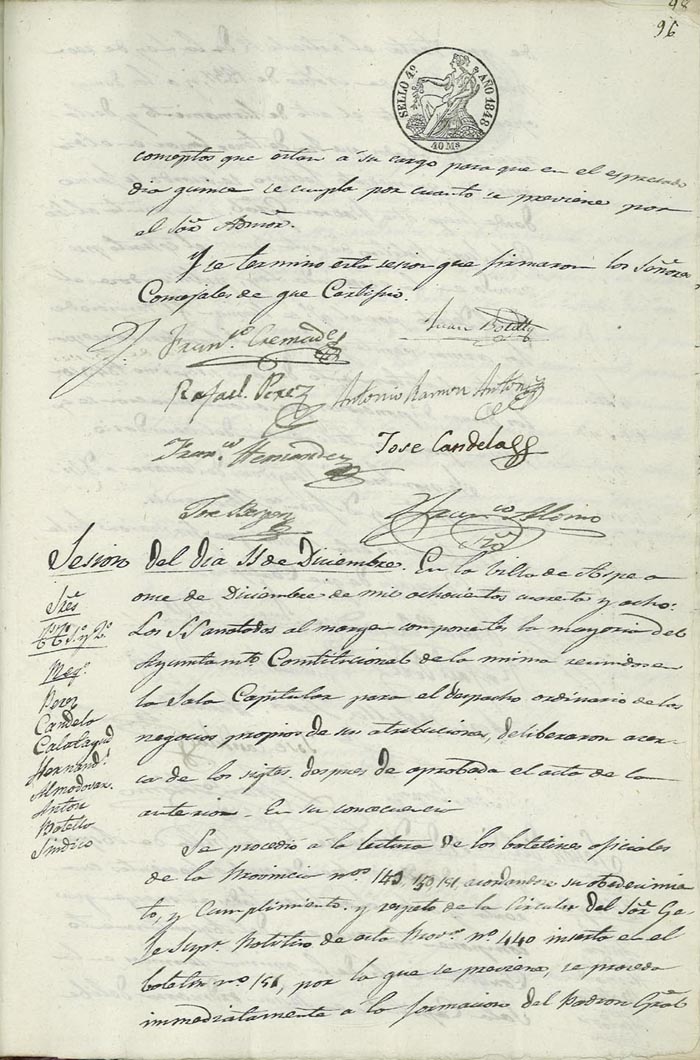 48
96
SELLO 4º AÑO 1848
40 Ms
conceptos que estan á su cargo para que en el espresado
dia quince se cumpla por cuanto se previene por
el Sor. Admor.
Y se termino esta sesion que firmaron los Señores
Concejales de que Certifico.
Franco. Cremades
Juan Botella
Rafael Perez
Antonio Ramon Antón
Franco. Hernandez
Jose Candela
Franco.
Sesion del dia 11 de Diciembre. En la Villa de Aspe a
once de Diciembre de mil ochocientos cuarenta y ocho:
Los SS anotados al margen componentes la mayoria del
Ayuntamto. Constitucional de la misma reunidos en
la Sala Capitular para el despacho ordinario de los
negocios propios de sus atribuciones, deliberaron acer-
ca de los sigtes. despues de aprobada el acta de la
anterior. En su consecuencia
Sres
Perez
Candela
Calatayud
Hernandz.
Almodovar.
Anton
Botella
Sindico
Se procedió á la lectura de los boletines oficiales
de la Provincia nros 149, 150, 151, acordandose su obedecimien
to, y Cumplimiento. y respeto de la Circular del Sor. Ge-
fe Supr. Politico de esta Provca. nº 440 inserta en el
boletin nº 151, por la que se previene, se proceda
immediatamente a la formacion del Padron Gral